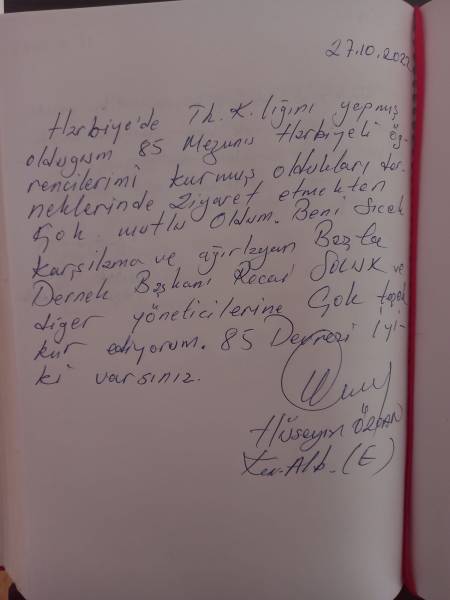 27.10.202
Harbiye'de Th. K. lığını yapmış
olduğum 85 Mezunu Harbiyeli öğ-
rencilerimi kurmuş oldukları der-
neklerinde ziyaret etmekten
çok mutlu oldum. Beni sıcak
karşılama ve ağırlayan Başta
Dernek Başkanı Recai SOLUK ve
diğer yöneticilerine çok teşek
kür ediyorum. 85 Devresi iyi-
ki varsınız.
Hüseyin ÖZCAN
Alb. (E)